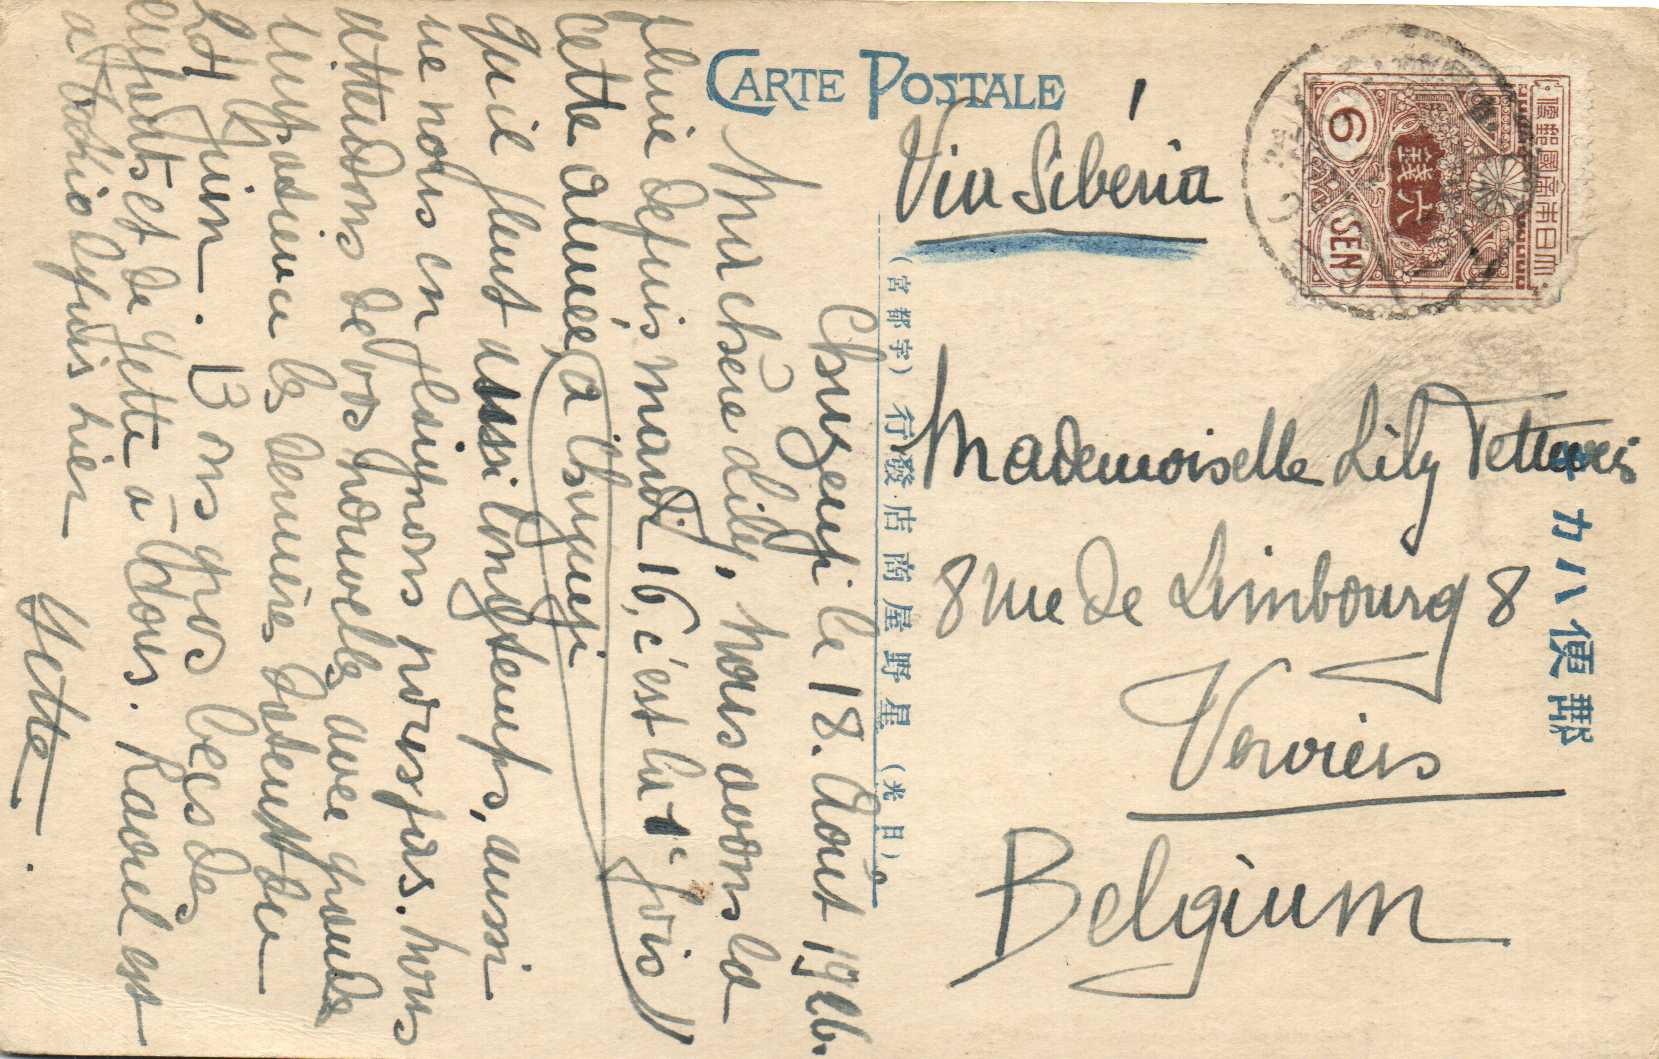 CARTE POSTALE
Via Sibéria
6
六銭
SEN
大日本帝國郵便
Mademoiselle Lily
8 rue de Limbourg 8
Verviers
Belgium
郵便ハカ
(日光) 星野屋商店發行 (宇都宮)
Chuzenji le 18. Août 1926.
Ma chère Lily, nous avons la
pluie depuis mardi 16, c'est la 1e fois
cette année, à Chuzenji
qu'il pleut aussi longtemps, aussi
ne nous en plaignons nous pas. Nous
attendons de vos nouvelles avec grande
impatience les dernières datent du
24 Juin. Bons gros becs des
enfants et de Yette à tous. Raoul est
à Tokio depuis hier
Yette.